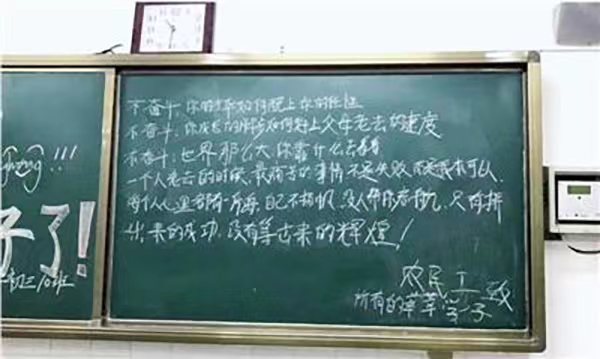 不奋斗，你的才华如何配上你的任性
不奋斗，你成长的脚步如何赶上父母老去的速度
不奋斗，世界那么大，你靠什么去看看
一个人老去的时候，最痛苦的事情不是失败，而是我本可以，
每个人心里都有一片海，自己不扬帆，没人帮你启航，只有拼
出来的成功，没有等出来的辉煌！
农民工
所有的莘莘学子 致
子了!
初三10班